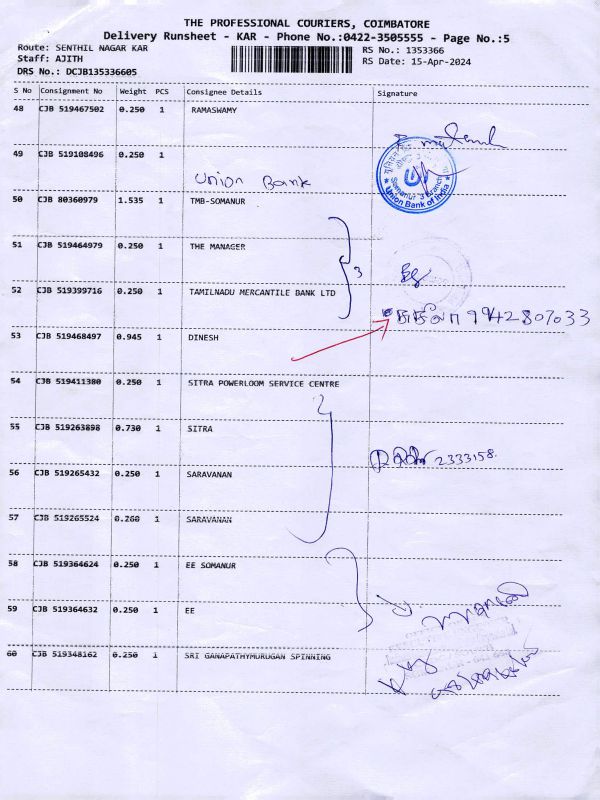 THE PROFESSIONAL COURIERS, COIMBATORE
Delivery Runsheet - KAR - Phone No.:0422-3505555 - Page No.:5
Route: SENTHIL NAGAR KAR RS No.: 1353366
Staff: AJITH RS Date: 15-Apr-2024
DRS No.: DCJB135336605
S No Consignment No Weight PCS Consignee Details Signature
48 CJB 519467502 0.250 1 RAMASWAMY
49 CJB 519108496 0.250 1
Union Bank
Somanur 3 Branch
Union Bank of India
50 CJB 80360979 1.535 1 TMB-SOMANUR
51 CJB 519464979 0.250 1 THE MANAGER
3
52 CJB 519399716 0.250 1 TAMILNADU MERCANTILE BANK LTD
9942807033
53 CJB 519468497 0.945 1 DINESH
54 CJB 519411380 0.250 1 SITRA POWERLOOM SERVICE CENTRE
55 CJB 519263898 0.730 1 SITRA
2333158.
56 CJB 519265432 0.250 1 SARAVANAN
57 CJB 519265524 0.260 1 SARAVANAN
58 CJB 519364624 0.250 1 EE SOMANUR
59 CJB 519364632 0.250 1 EE
60 CJB 519348162 0.250 1 SRI GANAPATHYMURUGAN SPINNING